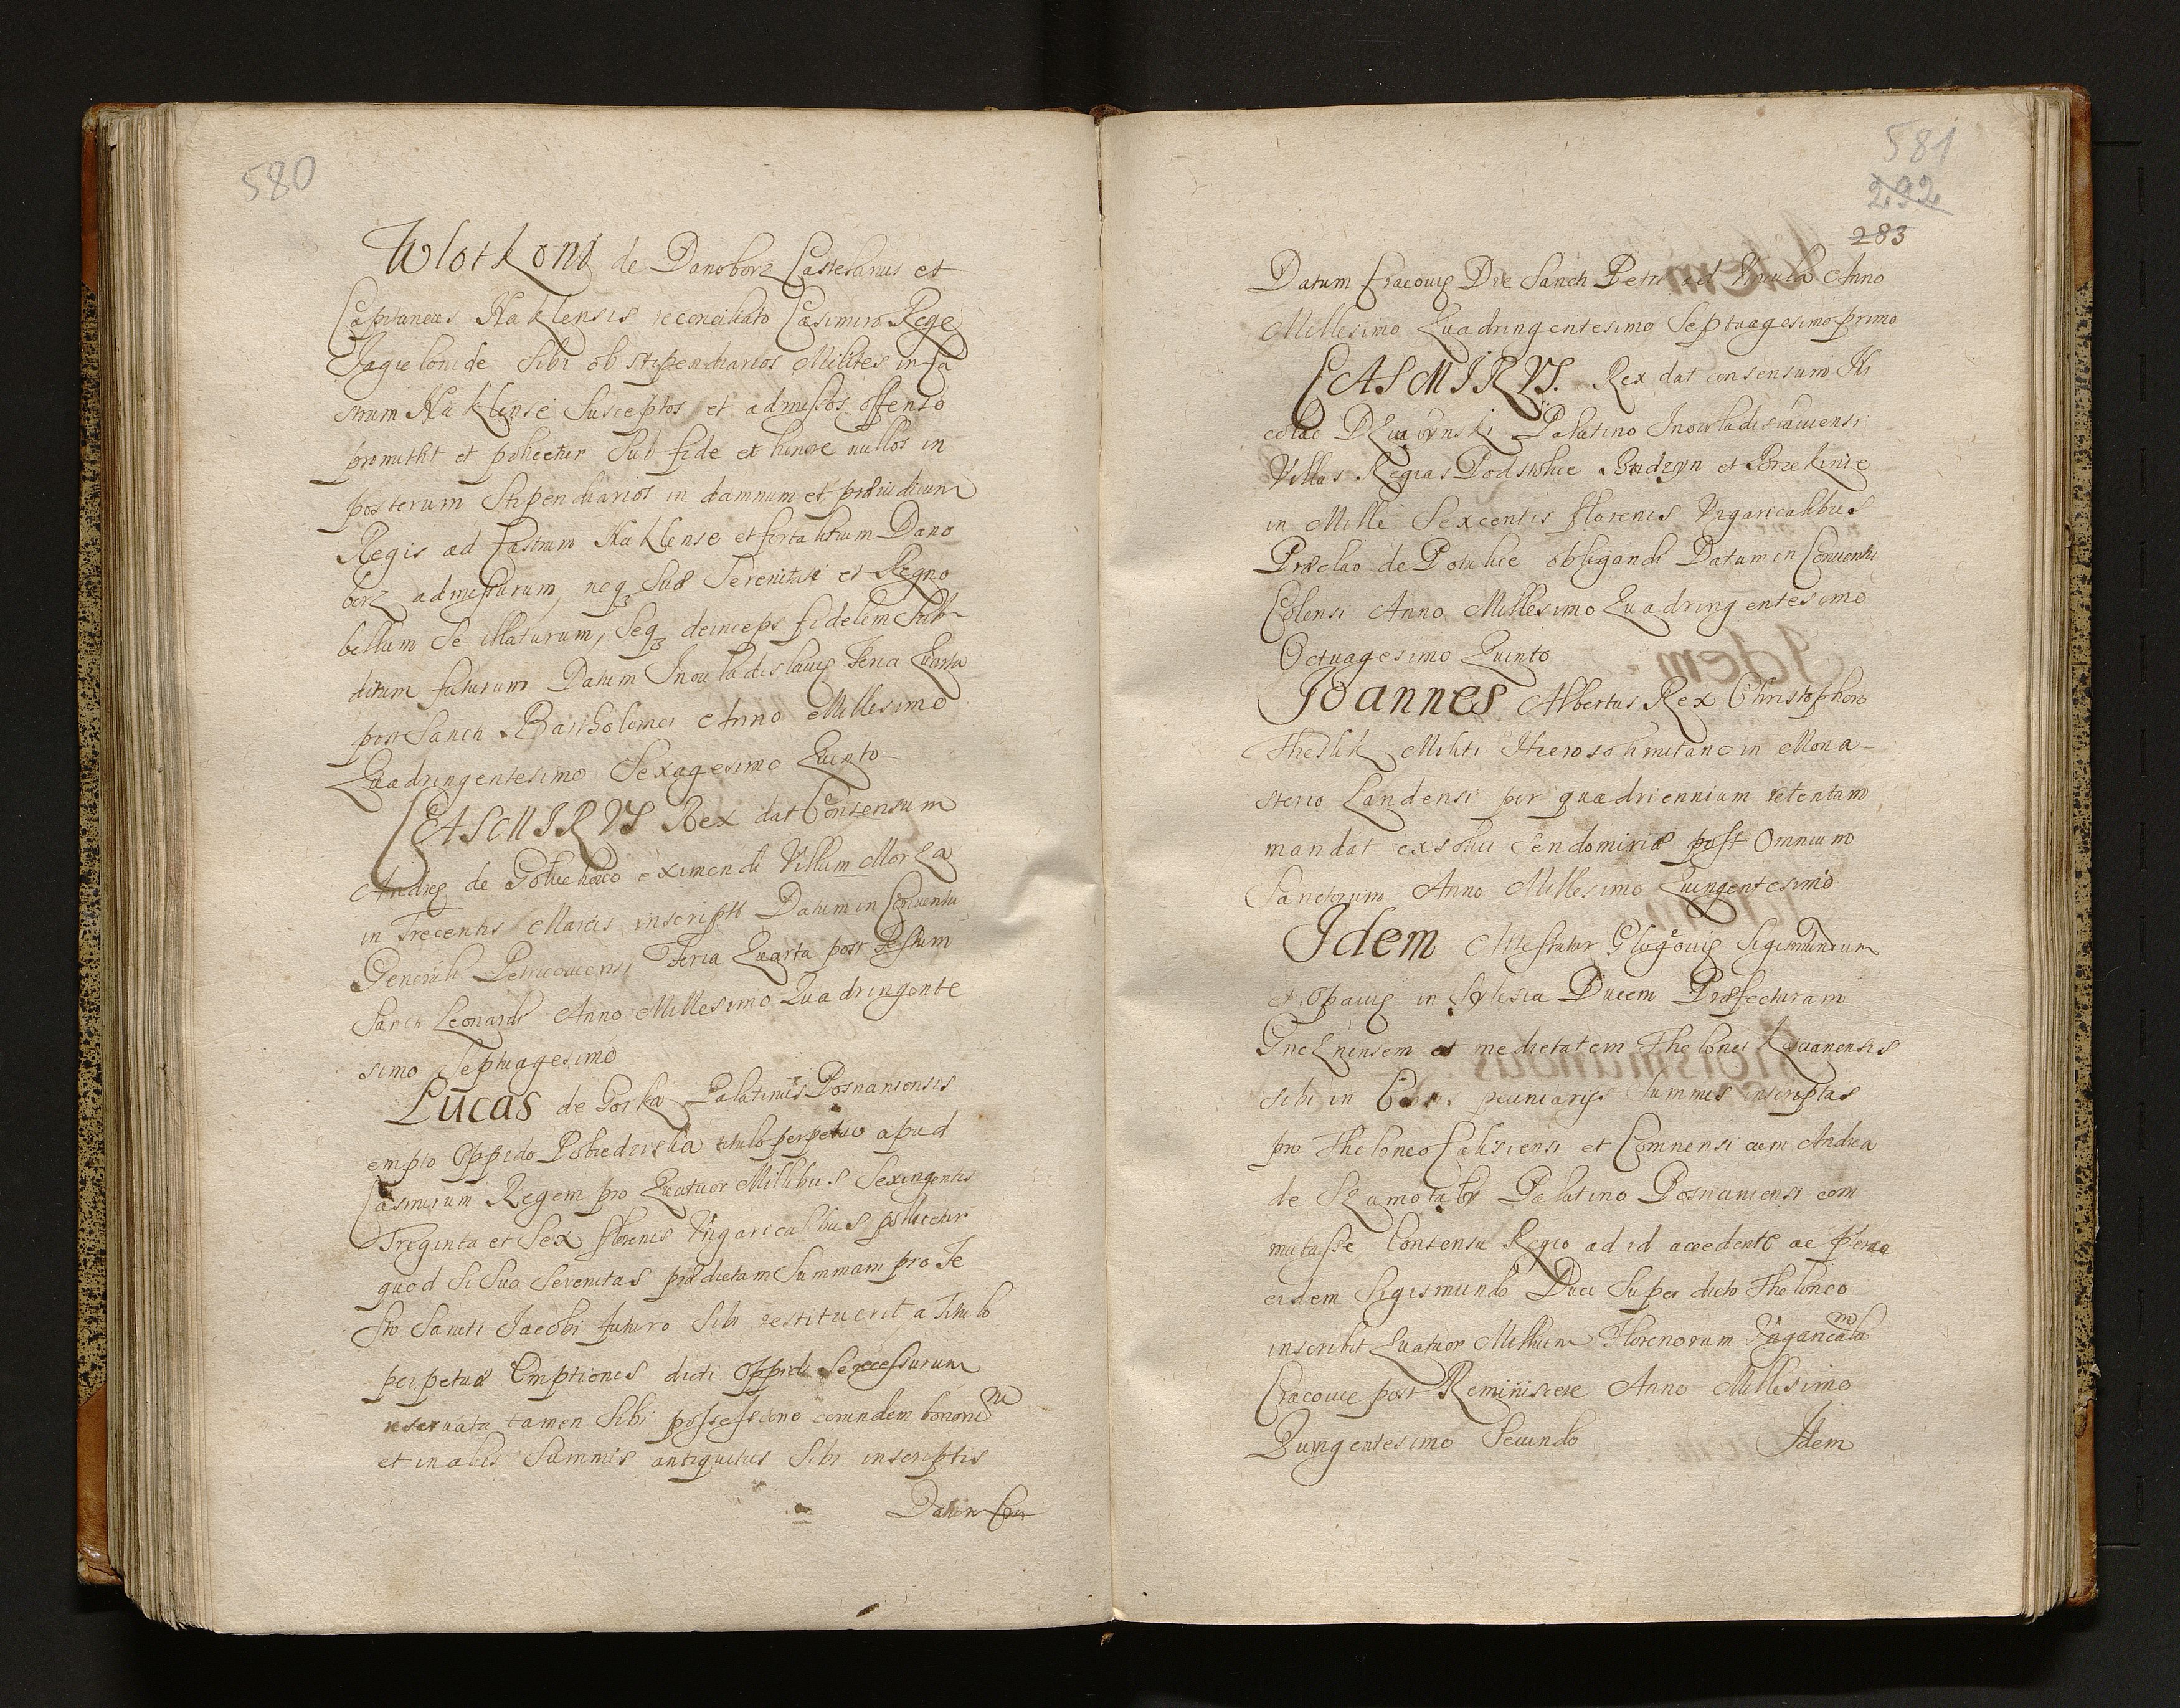 580
Wlotkoni de Danoborz Castelanus et
Capitaneus Naklensis reconciliato Casimiro Rege
Jagielonide Sibi ob stipendiarios Milites in Ca
strum Naklense Susceptos et admissos offenso
promittit et policetur Sub fide et honore nullos in
posterum Stipendiarios in damnum et præiudicium
Regis ad Castrum Naklense et fortalitium Dano
borz admissurum, neq3 Suæ Serenitati et Regno
bellum Se illaturum, Seq3 deinceps fidelem Sub-
ditum futurum Datum Inouladislauię Feria Quarta
post Sancti Bartholomei Anno Millesimo
Quadringentesimo Sexagesimo Quinto
CASMIRVS Rex dat Consensum
Andreę de Goluchowo eximendi Villam Morza
in Trecentis Marcis inscriptis Datum in Conuentu
Generali Petricouiensi Feria Quarta post Festum
Sancti Leonardi Anno Millesimo Quadringente
simo Septuagesimo
Lucas de Gorka Palatinus Posnaniensis
empto Oppido Pobiedziska titulo perpetuo apud
Casmirum Regem pro Quatuor Millibus Sexingentis
Triginta et Sex florenis Vngaricalibus pollicetur
quod Si Sua Serenitas prædictam Summam pro Fe
sto Sancti Jacobi futuro Sibi restituerit a Titulo
perpetuæ Emptiones dicti Oppidi Se recessurum
reseruata tamen Sibi possessione eorundem bonoru m
et in alijs Summis antiquitus Sibi inscriptis
Datum Cra
581
292
283
Datum Cracouię Die Sancti Petri ad Vincula Anno
Millesimo Quadringentesimo Septuagesimo primo
CASMIRVS. Rex dat consensum Ni
colao Dzwornski Palatino Inowladislauiensi
Villas Regias Podstolice Budzyn et Brzekinie
in Mille Sexcentis florenis Vngaricalibus
Præclao de Potulice obligandi Datum in Conuentu
Colensi Anno Millesimo Quadringentesimo
Octuagesimo Quinto
Joannes Albertus Rex Christophoro
Militi Hierosolimitano in Mona-
sterio Landensi per quadriennium retentam
mandat exsolui Sendomiriæ post Omnium
Sanctorum Anno Millesimo Quingentesimo
Idem Attestatur Glogouię Sigismundum
et Opauię in Sylisia Ducem Præfecturam
Gneznensem et medietatem Thelonei
sibi in pecuniarijs Summis inscriptas
pro Theloneo Calisiensi et Comnensi cum Andrea
de Szamotuly Palatino Posnaniensi com
mutasse Consensu Regio ad id accedente ac
eidem Sigismundo Duci Super dicto Theloneo
inscribit Quatuor Millium Florenorum Vngarica m
Cracouie post Reminiscere Anno Millesimo
Quingentesimo Secundo Idem